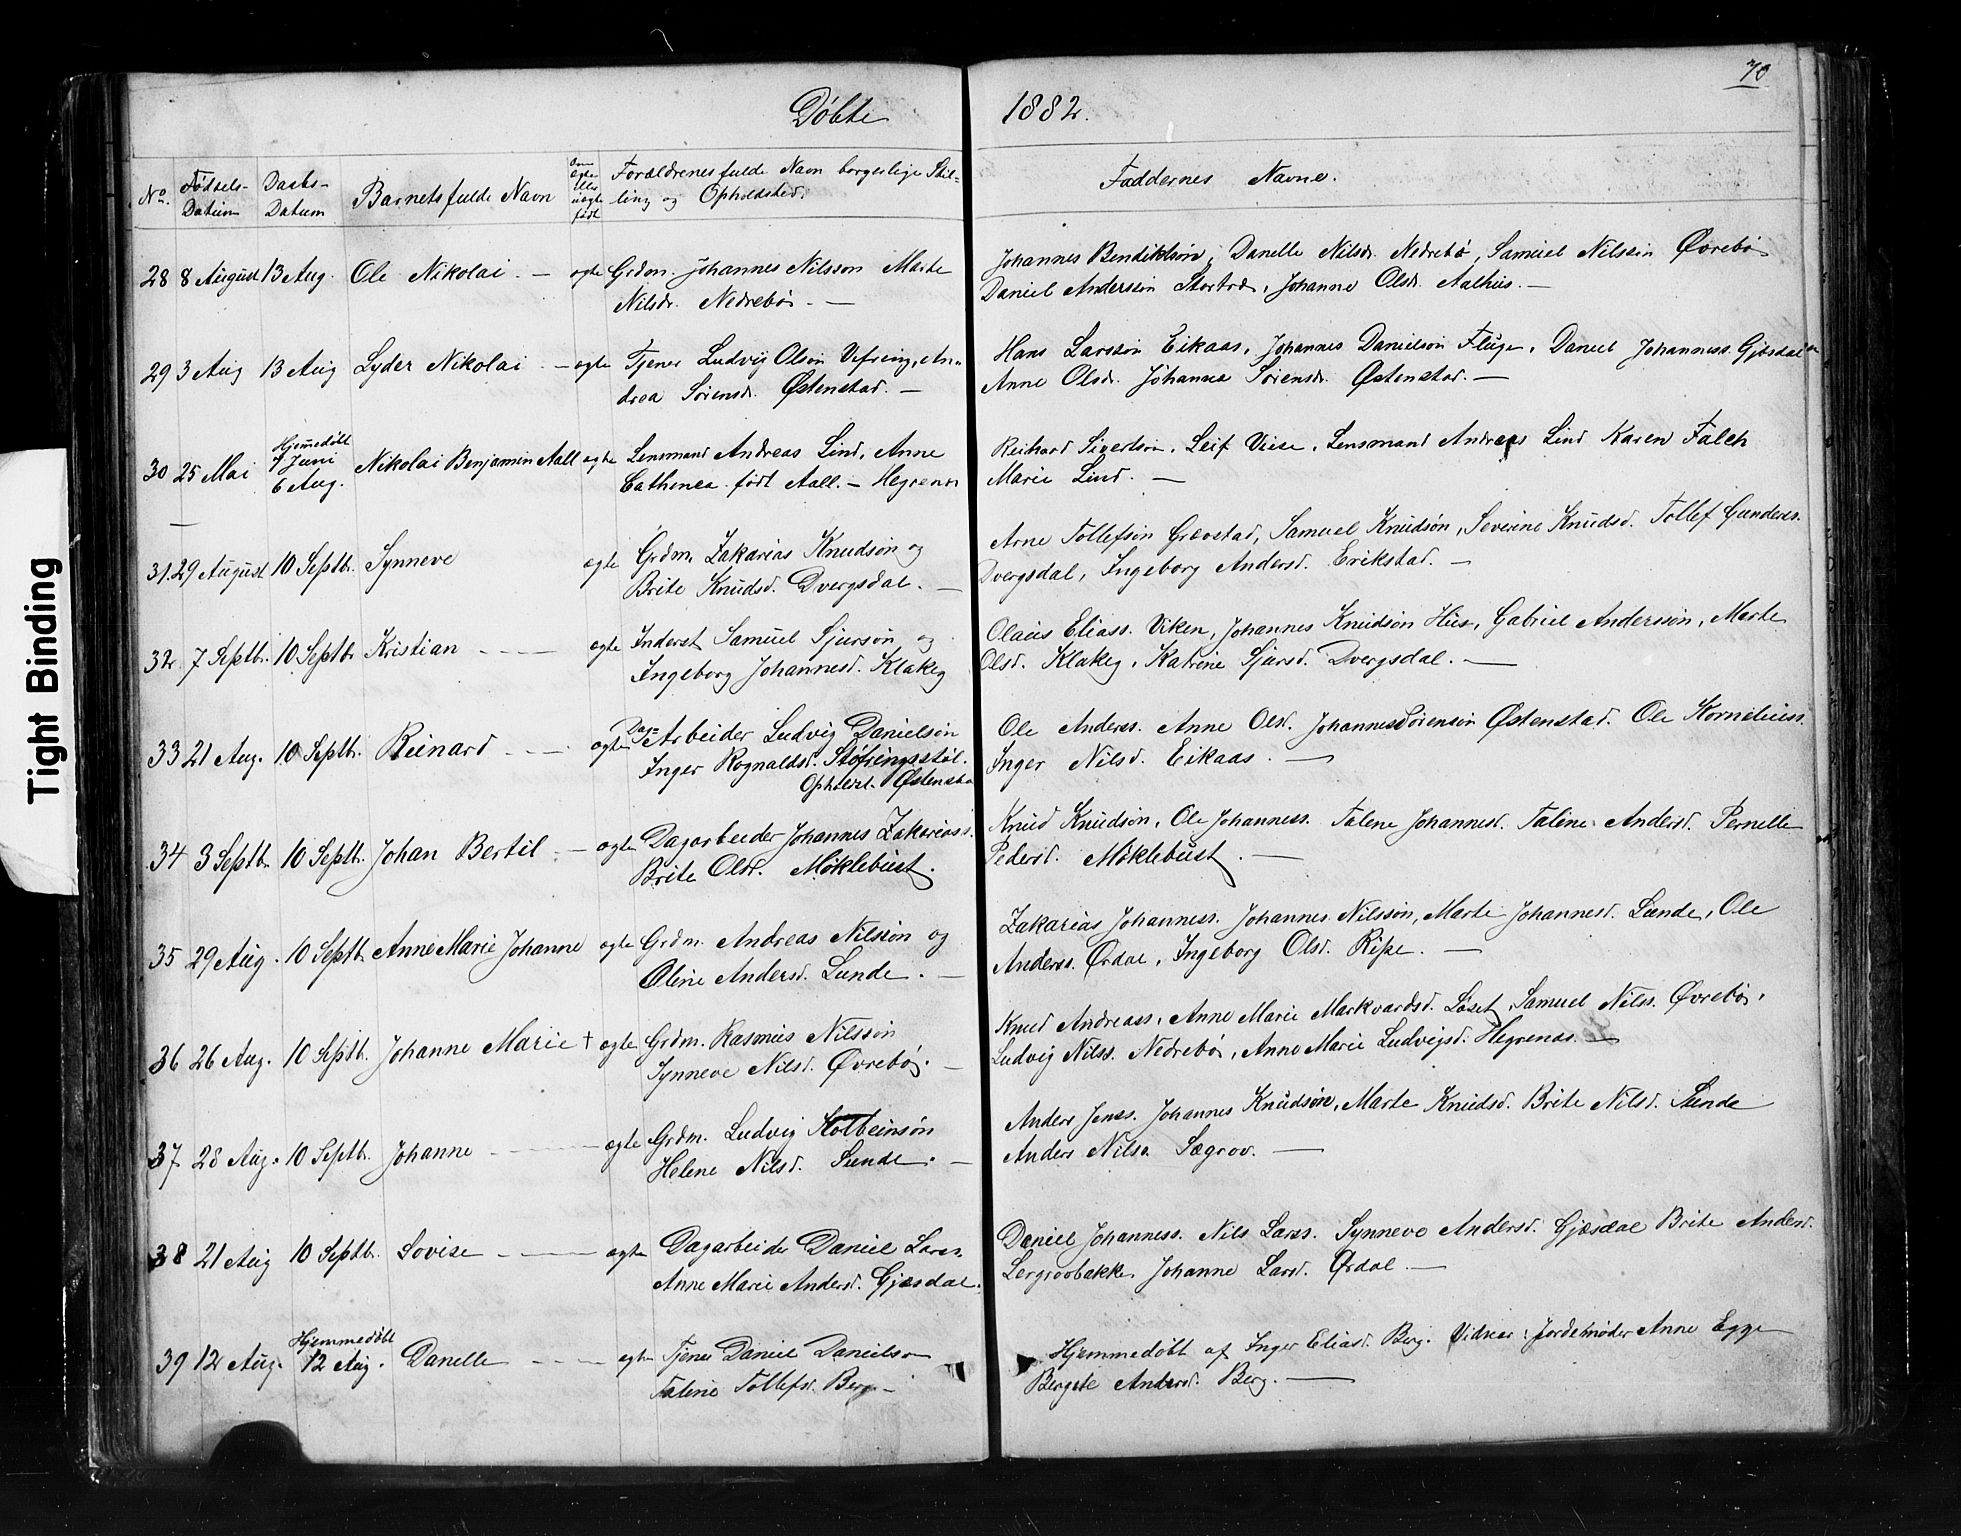 70
Döbte 1882.
No. Fødsels-Datum Daabs-Datum Barnets fulde Navn Om ægte eller uægte født Forældrenes fulde Navn borgerlige Stilling og Opholdsted. Faddernes Navne.
28 8 August 13 Aug. Ole Nikolai. — ægte Grdm. Johannes Nilsson Marte
Nilsdr. Nedrebö. —
Johannes Bendiktsön, Danelle Nilsdr. Nedrebö, Samuel Nilssön Övrebö
Daniel Anderssön Johanne Olsdr. Aalhus. —
29 3 Aug 13 Aug Lyder Nikolai — ægte Tjener Ludvig Olsön Vefring, An-
drea Sörensdr. Østenstad. —
Hans Larssön Eikaas, Johannes Danielsön Fluge, Daniel Johanness. Gjesdal
Anne Olsdr. Johanna Sörensdr. Østenstad. —
30 25 Mai Hjemmedöbt
7 Juni
6 Aug. Nikolai Benjamin Aall ægte Lensmand Andreas Lind, Anne
Cathinca född Aall. — Hegrenes
Reihard Sivertsön, Leif Viese, Lensmand Andreas Lind Karen Falch
Marie Lind. —
31. 29 August 10 Septb. Synneve ægte Grdm. Zakarias Knudsön og
Brite Knudsd. Dvergsdal. —
Arne Tollefsön Grovstad, Samuel Knudsön, Severine Knudsd. Tollef Gunders.
Dvergsdal, Ingeborg Andersd. Erikstad. —
32. 7 Septb. 10 Septb Kristian — — ægte Inderst Samuel Sjursön og
Ingeborg Johannesd. Klakeg
Olaus Eliass. Viken, Johannes Knudsön Hus, Gabriel Anderssön, Marte
Olsd. Klakeg, Katrine Sjursd. Dvergsdal. —
33 21 Aug. 10 Septb. Reinard — — ægte Dag-
Arbeider Ludvig Danielsön
Inger Rognaldsd. Støfringsstöl.
Opholdst. Østensta
Ole Anderss. Anne Olsd. Johannes Sörensön Østenstad. Ole Kornelius.
Inger Nilsd. Eikaas. —
34 3 Septb. 10 Septb. Johan Bertil — ægte Dagarbeider Johannes Zakariass.
Brite Olsd. Möklebust.
Knud Knudsön, Ole Johanness. Talene Johannesd. Taline Andersd. Pernelle
Pedersd. Möklebust. —
35 29 Aug. 10 Septb. Anne Marie Johanne ægte Grdm. Andreas Nilssön og
Oline Andersd. Lunde. —
Zakarias Johanness. Johannes Nilssön, Marte Johannesd. Lunde, Ole
Anderss. Ørdal, Ingeborg Olsd. Ripe. —
36 26 Aug. 10 Septb. Johanne Marie + ægte Grdm. Rasmus Nilssön
Synneve Nilsd. Övrebö. —
Knud Andreass, Anne Marie Markvardsd. Löset, Samuel Nilss. Övrebö,
Ludvig Nilss. Nedrebö, Anne Marie Ludvigsd. Hegrenæs. —
37 28 Aug. 10 Septb. Johanne — — ægte Grdm. Ludvig Kolbeinsön
Helene Nilsd. Sunde. —
Anders Jenss. Johannes Knudsön, Marte Knudsd. Brite Nilsd. Sunde
Anders Nilss. Sægrov. —
38 21 Aug 10 Septb. Lovise — — ægte Dagarbeider Daniel Larss.
Anne Marie Andersd. Gjesdal.
Daniel Johanness. Nils Larss. Synneve Andersd. Gjesdal Brite Andersd.
Lergrovbakke Johanne Larsd. Ørdal. —
39 12 Aug. Hjemmedöbt
12 Aug. Danelle — — ægte Tjener Daniel Danielsen
Taline Tollefsd. Berg. —
Hjemmedöbt af Inger Eliasd. Berg. Vidner: Jordemöder Anne Egge
Bergete Andersd. Berg. —
Tight Binding